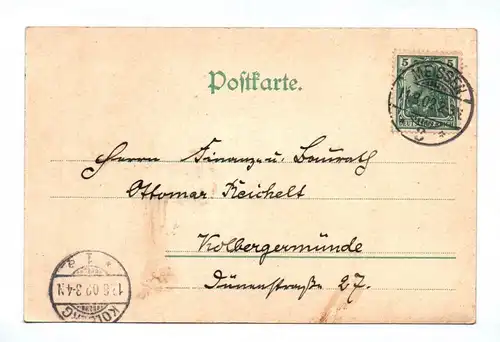 Postkarte.
5 5
MEISSEN
Herrn Finanz- u. Baurath
Ottomar Reichelt
Kolbergermünde
Dünenstraße 27.
* 1 a
12.6.02.3-4N
KOLBERG